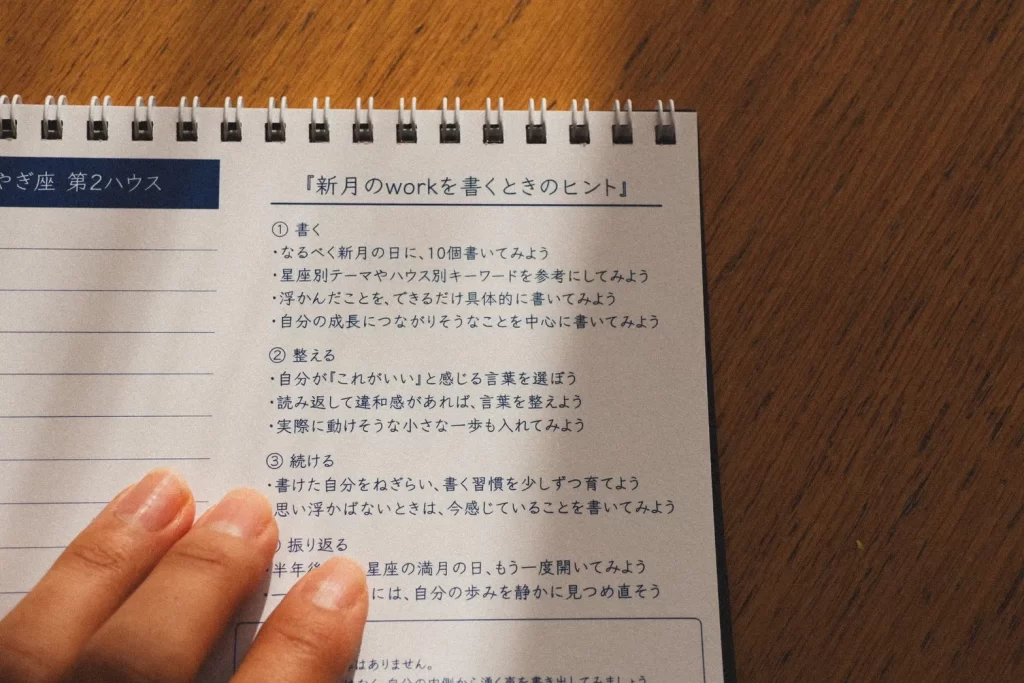 やぎ座 第2ハウス
『新月のworkを書くときのヒント』
① 書く
・なるべく新月の日に、10個書いてみよう
・星座別テーマやハウス別キーワードを参考にしてみよう
・浮かんだことを、できるだけ具体的に書いてみよう
・自分の成長につながりそうなことを中心に書いてみよう
② 整える
・自分が『これがいい』と感じる言葉を選ぼう
・読み返して違和感があれば、言葉を整えよう
・実際に動けそうな小さな一歩も入れてみよう
③ 続ける
・書けた自分をねぎらい、書く習慣を少しずつ育てよう
思い浮かばないときは、今感じていることを書いてみよう
振り返る
・半年後 星座の満月の日、もう一度開いてみよう
には、自分の歩みを静かに見つめ直そう
はありません。
なく、自分の内側から湧く声を書き出してみましょう